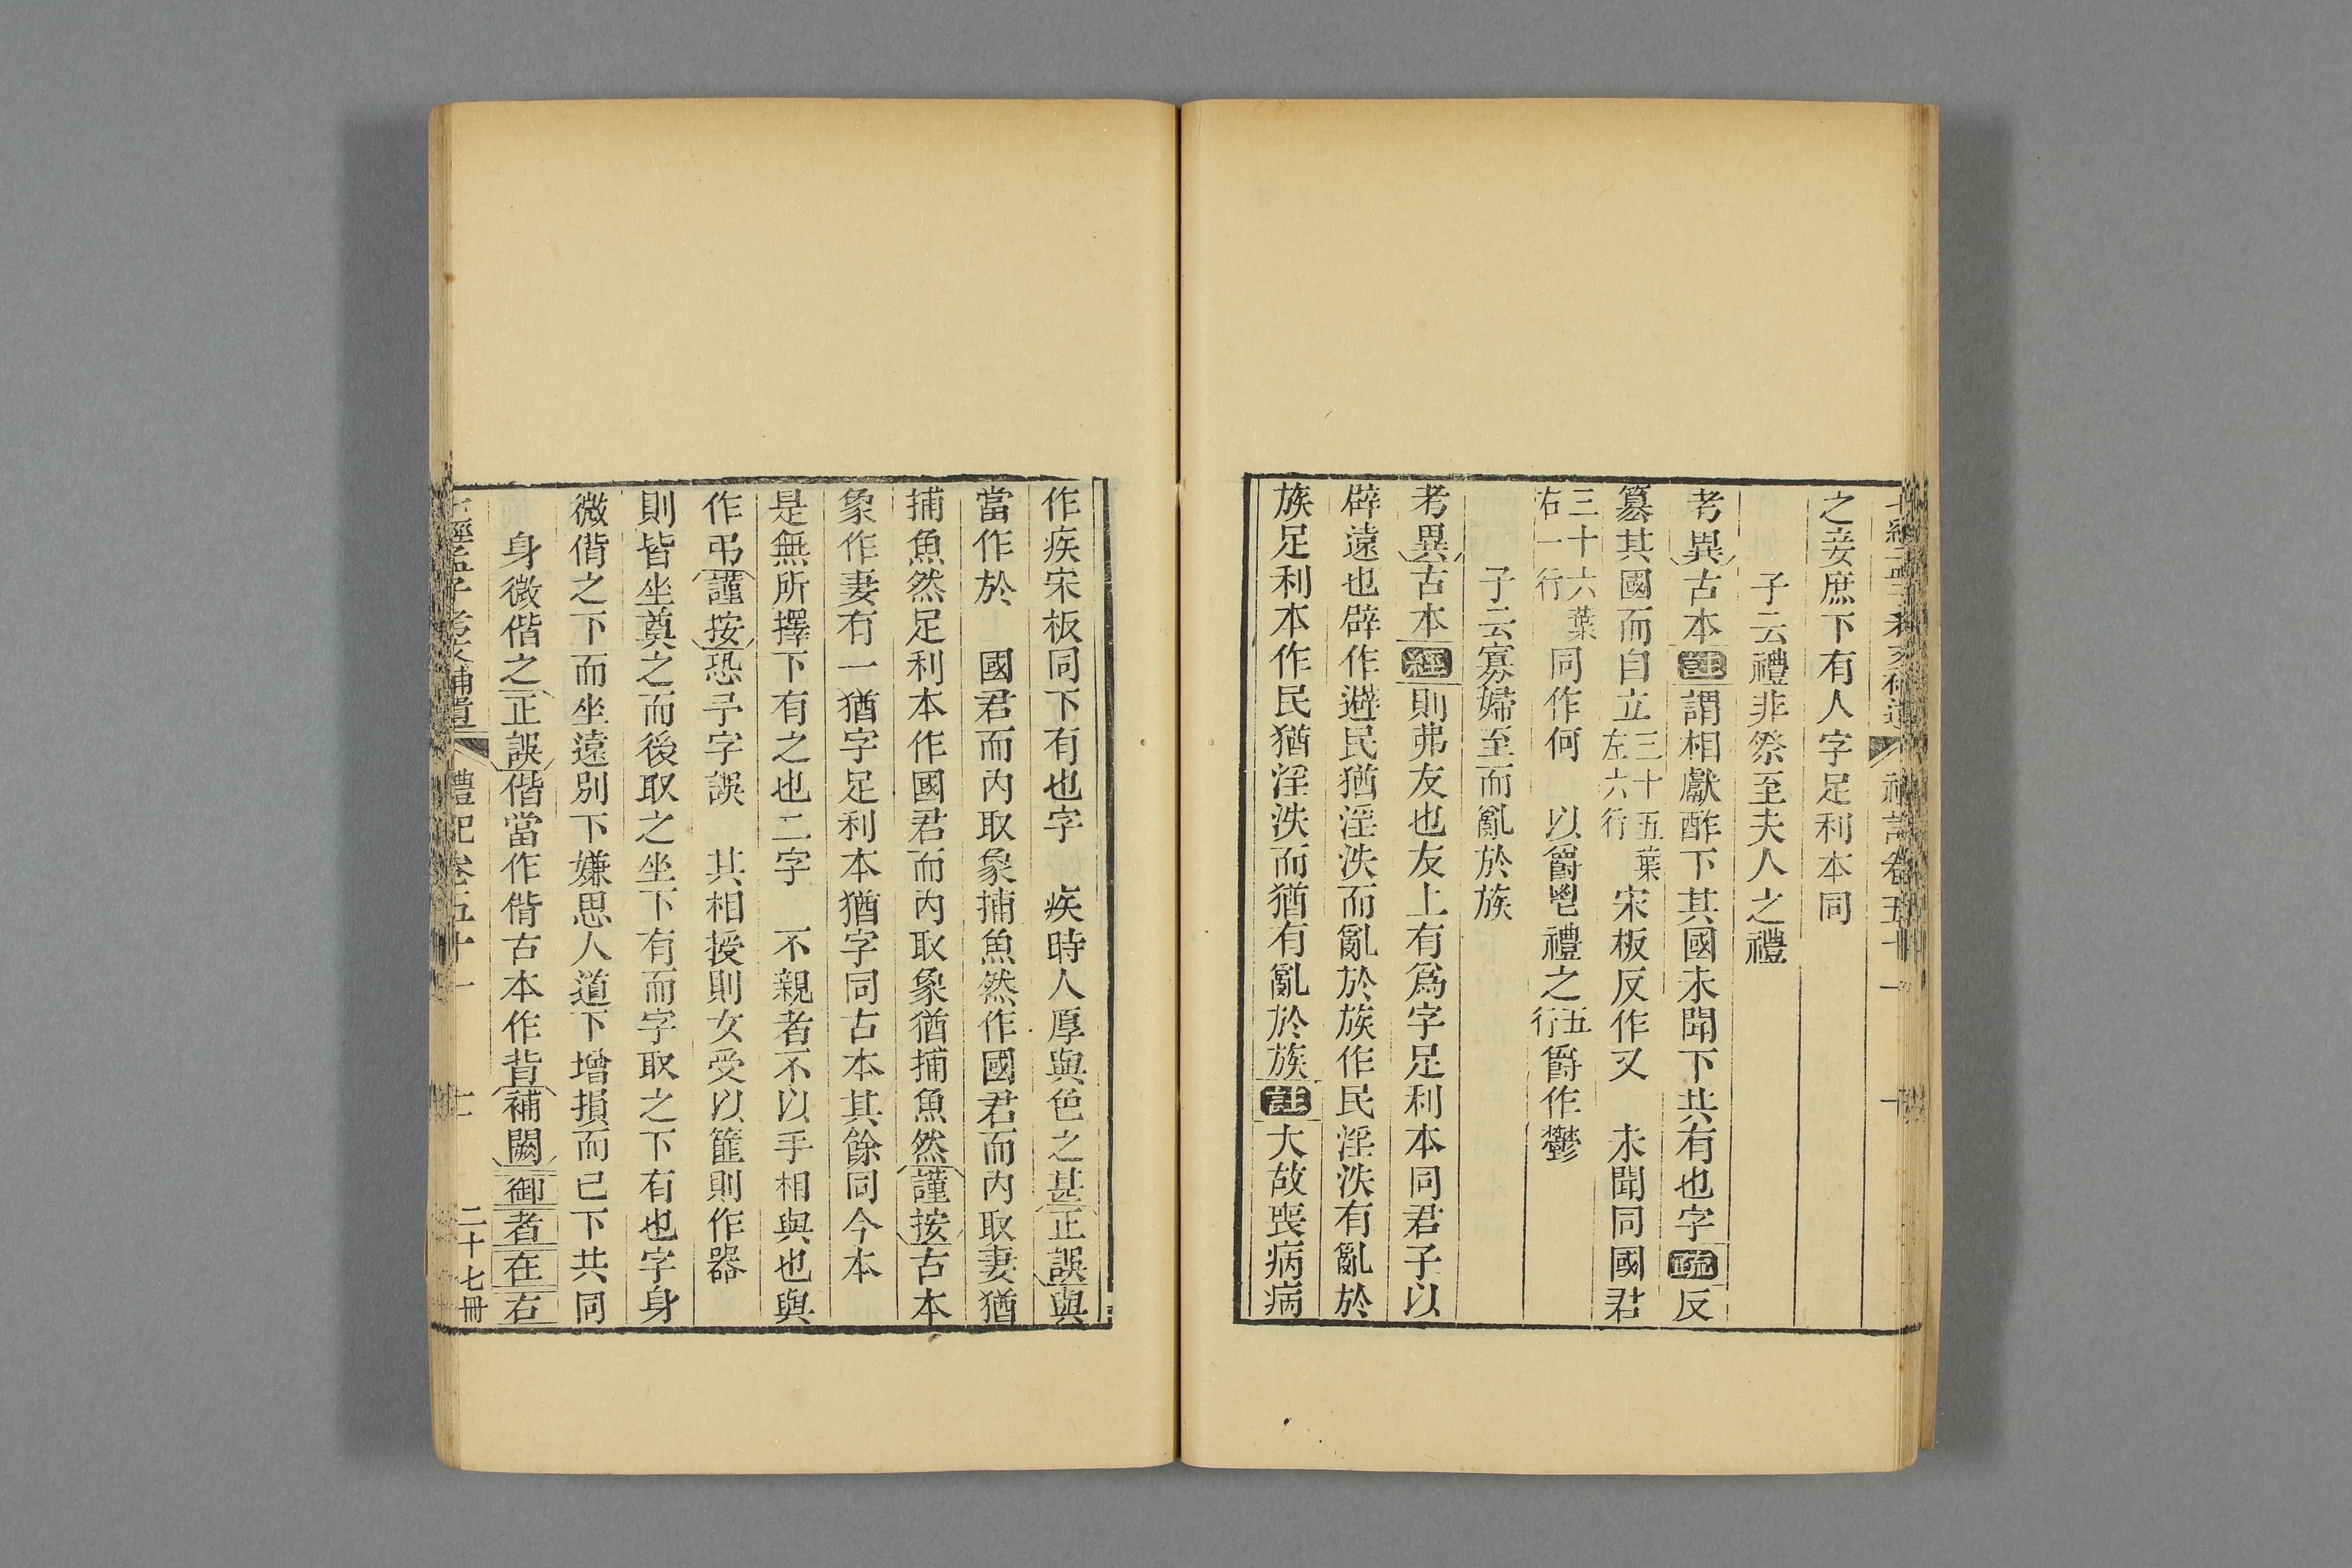 之妾庶下有人字足利本同
子云禮非祭至夫人之禮
考異古本註謂相獻酢下其國未聞下共有也字疏反
簒其國而自立三十五葉左六行宋板反作又　未聞同國君
三十六葉右一行同作何　以爵鬯禮之五行爵作鬱
子云寡婦至而亂於族
考異古本經則弗友也友上有爲字足利本同君子以
辟遠也辟作避民猶淫泆而亂於族作民淫泆有亂於
族足利本作民猶淫泆而猶有亂於族註大故喪病病
作疾宋板同下有也字　疾時人厚與色之甚正誤與
當作於　國君而内取象捕魚然作國君而内取妻猶
捕魚然足利本作國君而内取象猶捕魚然謹按古本
象作妻有一猶字足利本猶字同古本其餘同今本
是無所擇下有之也二字　不親者不以手相與也與
作弔謹按恐予字誤　其相授則女受以篚則作器
則皆坐奠之而後取之坐下有而字取之下有也字身
微偝之下而坐遠別下嫌思人道下增損而已下共同
身微偕之正誤偕當作偝古本作背補闕御者在右
七經孟子考文補遺　禮記卷五十一　二十七冊